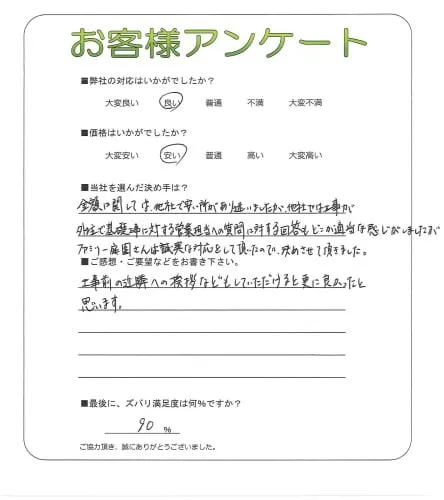 お客様アンケート
■弊社の対応はいかがでしたか？
大変良い 良い 普通 不満 大変不満
■価格はいかがでしたか？
大変安い 安い 普通 高い 大変高い
■当社を選んだ決め手は？
金額に関しては、他社で安い所があり迷いましたが、他社では工事が
外注で基礎事に対する営業担当への質問に対する回答もどこか適当な感じがしましたが
ファミリー庭園さんは誠実な対応をして頂いたので、決めさせて頂きました。
■ご感想・ご要望などをお書き下さい。
工事前の近隣への挨拶などもしていただけると更に良かったと
思います。
■最後に、ズバリ満足度は何％ですか？
90 ％
ご協力頂き、誠にありがとうございました。